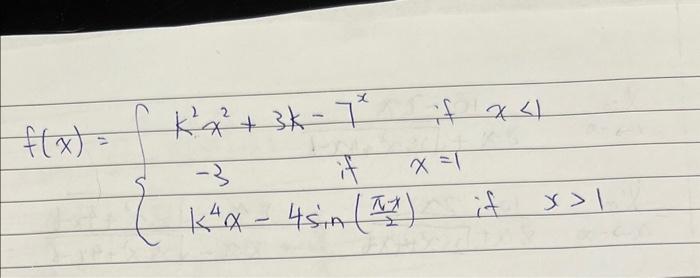 k²x² + 3k - 7ˣ if x < 1
f(x) = { -3 if x = 1
k⁴x - 4sin(πx/2) if x > 1